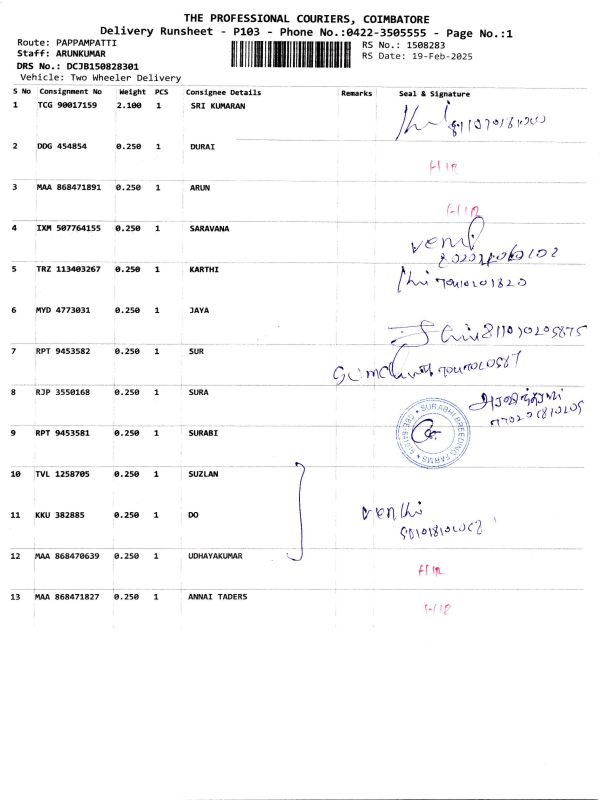 THE PROFESSIONAL COURIERS, COIMBATORE
Delivery Runsheet - P103 - Phone No.:0422-3505555 - Page No.:1
Route: PAPPAMPATTI
Staff: ARUNKUMAR
DRS No.: DCJB150828301
Vehicle: Two Wheeler Delivery
RS No.: 1508283
RS Date: 19-Feb-2025
S No Consignment No Weight PCS Consignee Details Remarks Seal & Signature
1 TCG 90017159 2.100 1 SRI KUMARAN
2 DDG 454854 0.250 1 DURAI
3 MAA 868471891 0.250 1 ARUN
4 IXM 507764155 0.250 1 SARAVANA
5 TRZ 113403267 0.250 1 KARTHI
6 MYD 4773031 0.250 1 JAYA
7 RPT 9453582 0.250 1 SUR
8 RJP 3550168 0.250 1 SURA
9 RPT 9453581 0.250 1 SURABI
SURABHI BREEDING FARMS
10 TVL 1258705 0.250 1 SUZLAN
11 KKU 382885 0.250 1 DO
12 MAA 868470639 0.250 1 UDHAYAKUMAR
13 MAA 868471827 0.250 1 ANNAI TADERS